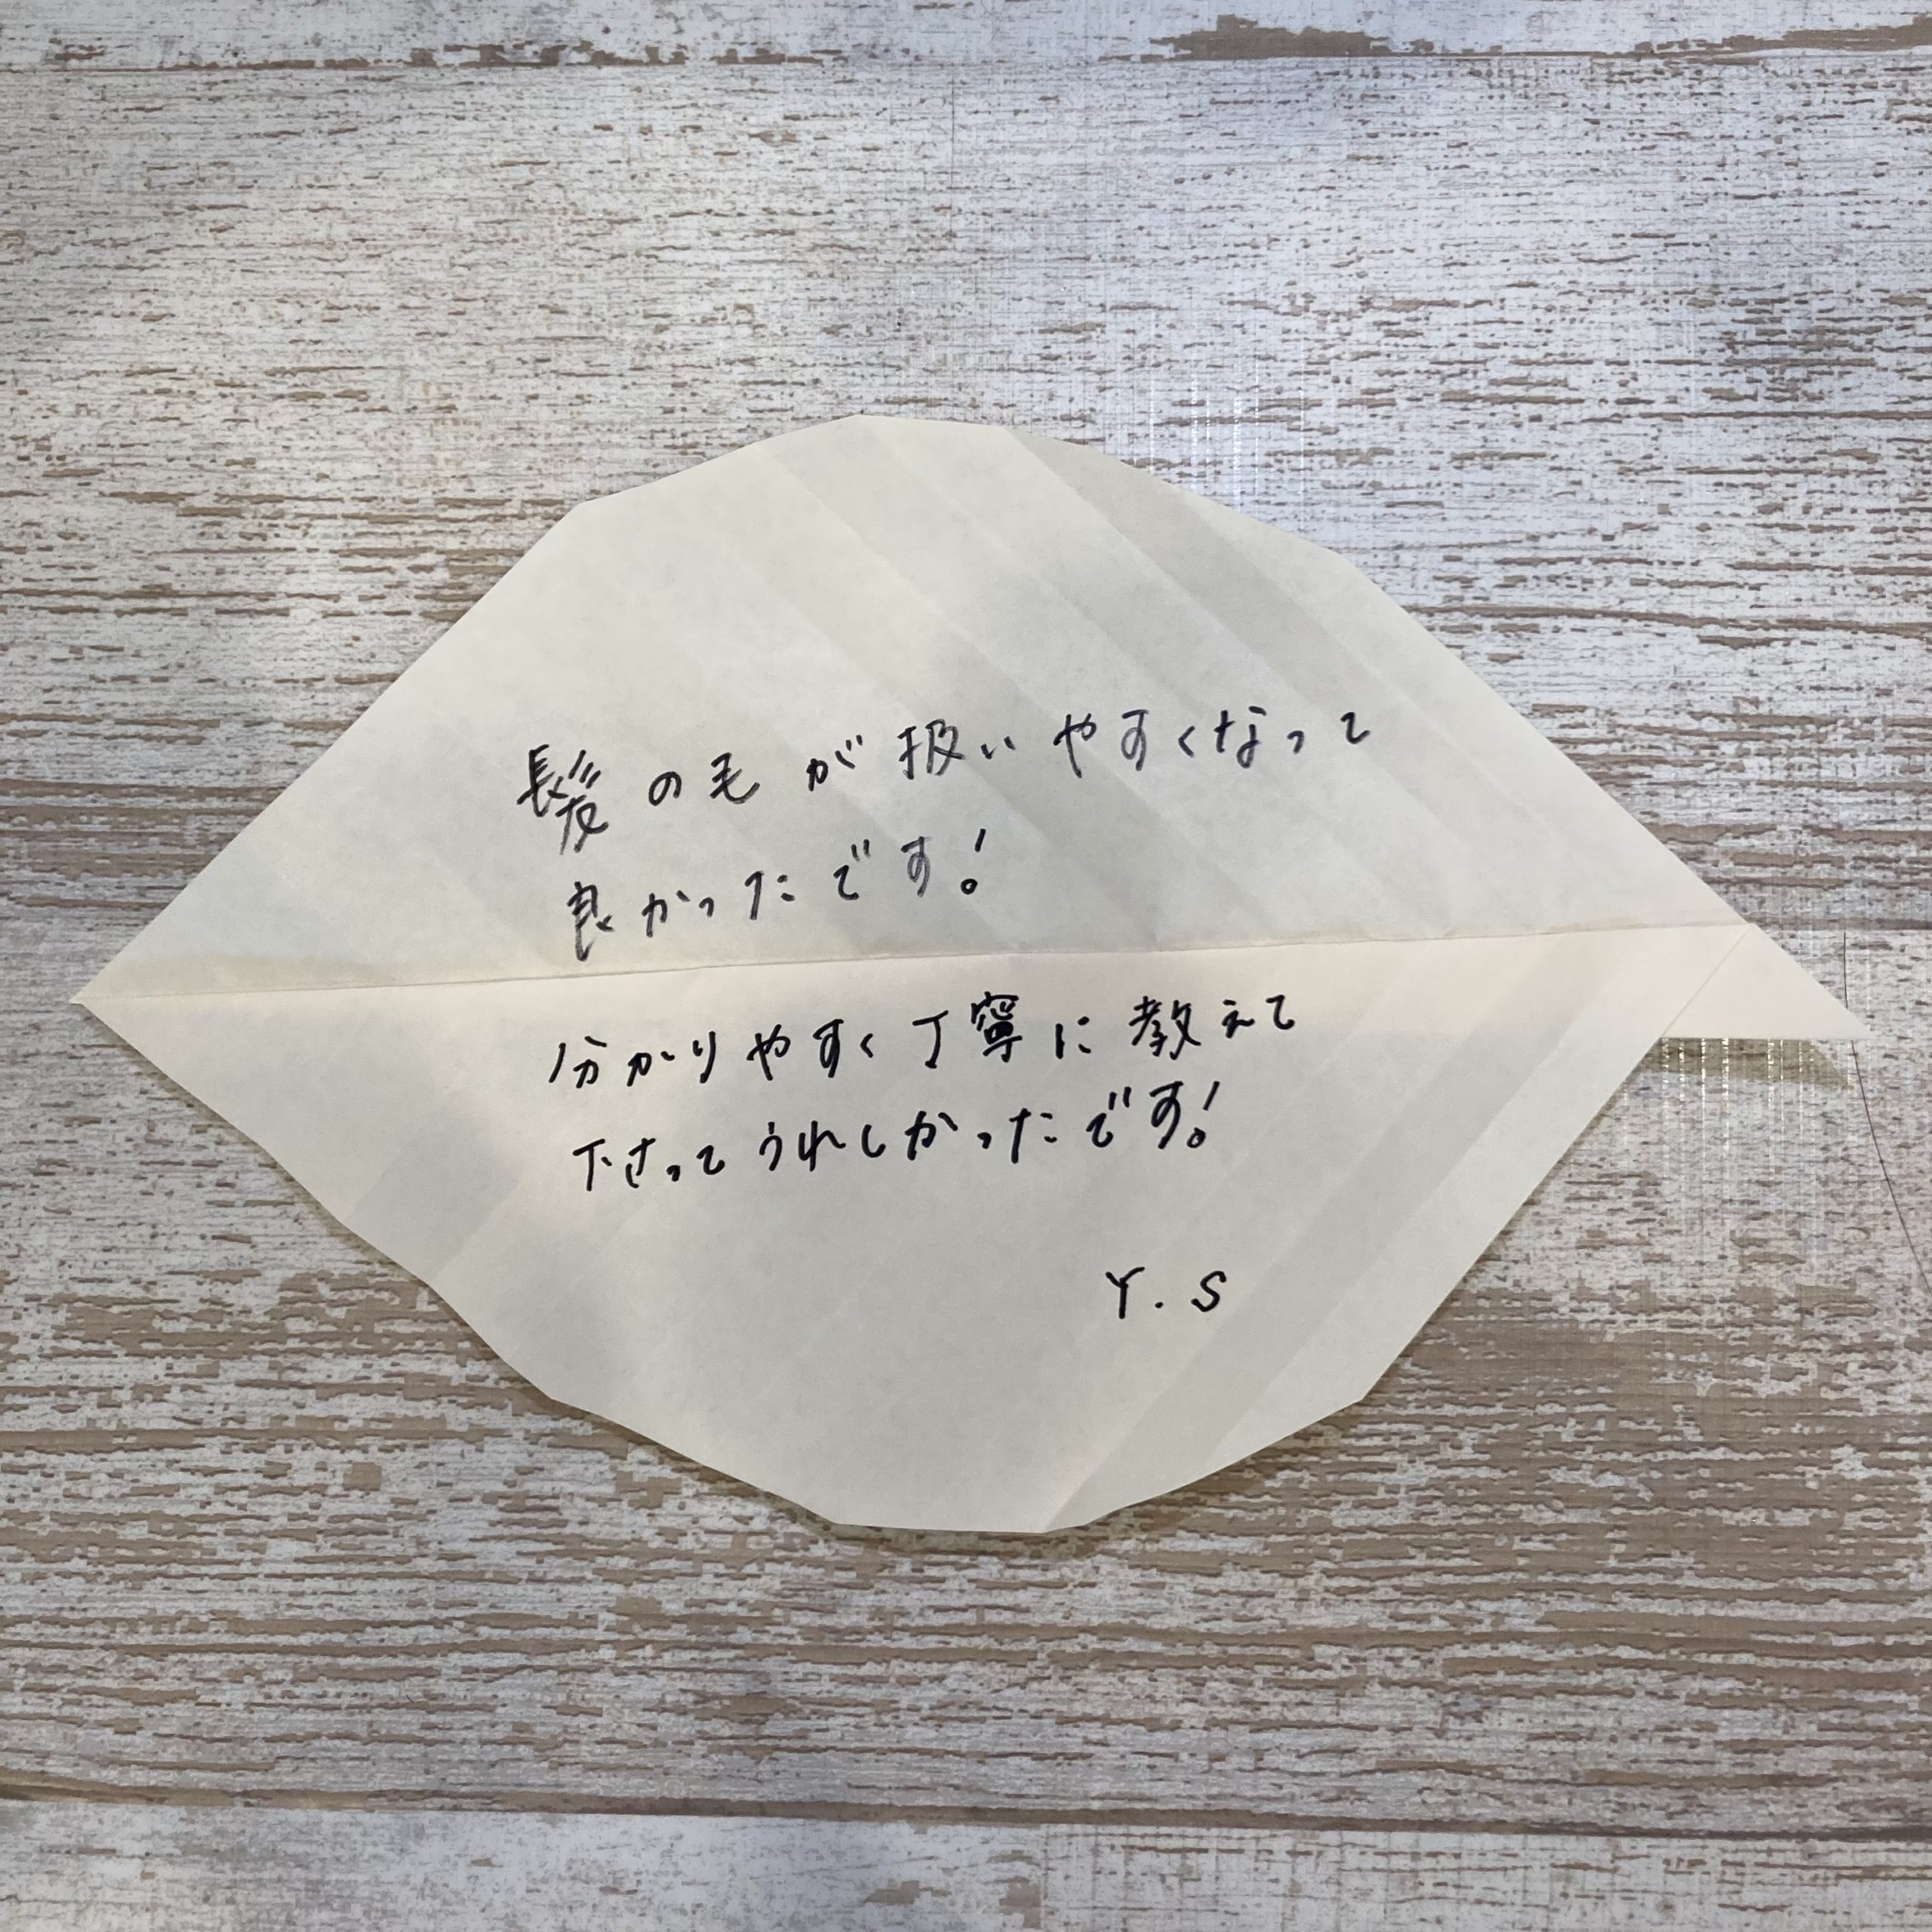 髪の毛が扱いやすくなって
良かったです!
分かりやすく丁寧に教えて
下さってうれしかったです!
Y.S